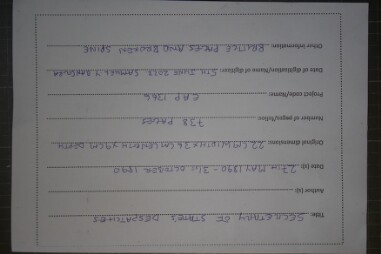 Title: SECRETARY OF STATE'S DESPATCHES
Author (s):
Date (s): 27TH MAY 1890 - 31st OCTOBER 1890
Original dimensions: 22 CM WIDTH X 36 CM LENGTH X 9 CM DEPTH
Number of pages/folios: 738 PAGES
Project code/Name: EAP 1366
Date of digitisation/Name/digitiser: 5TH JUNE 2023 SAMUEL T
Other information: BRITTLE PAGES AND BROKEN SPINE